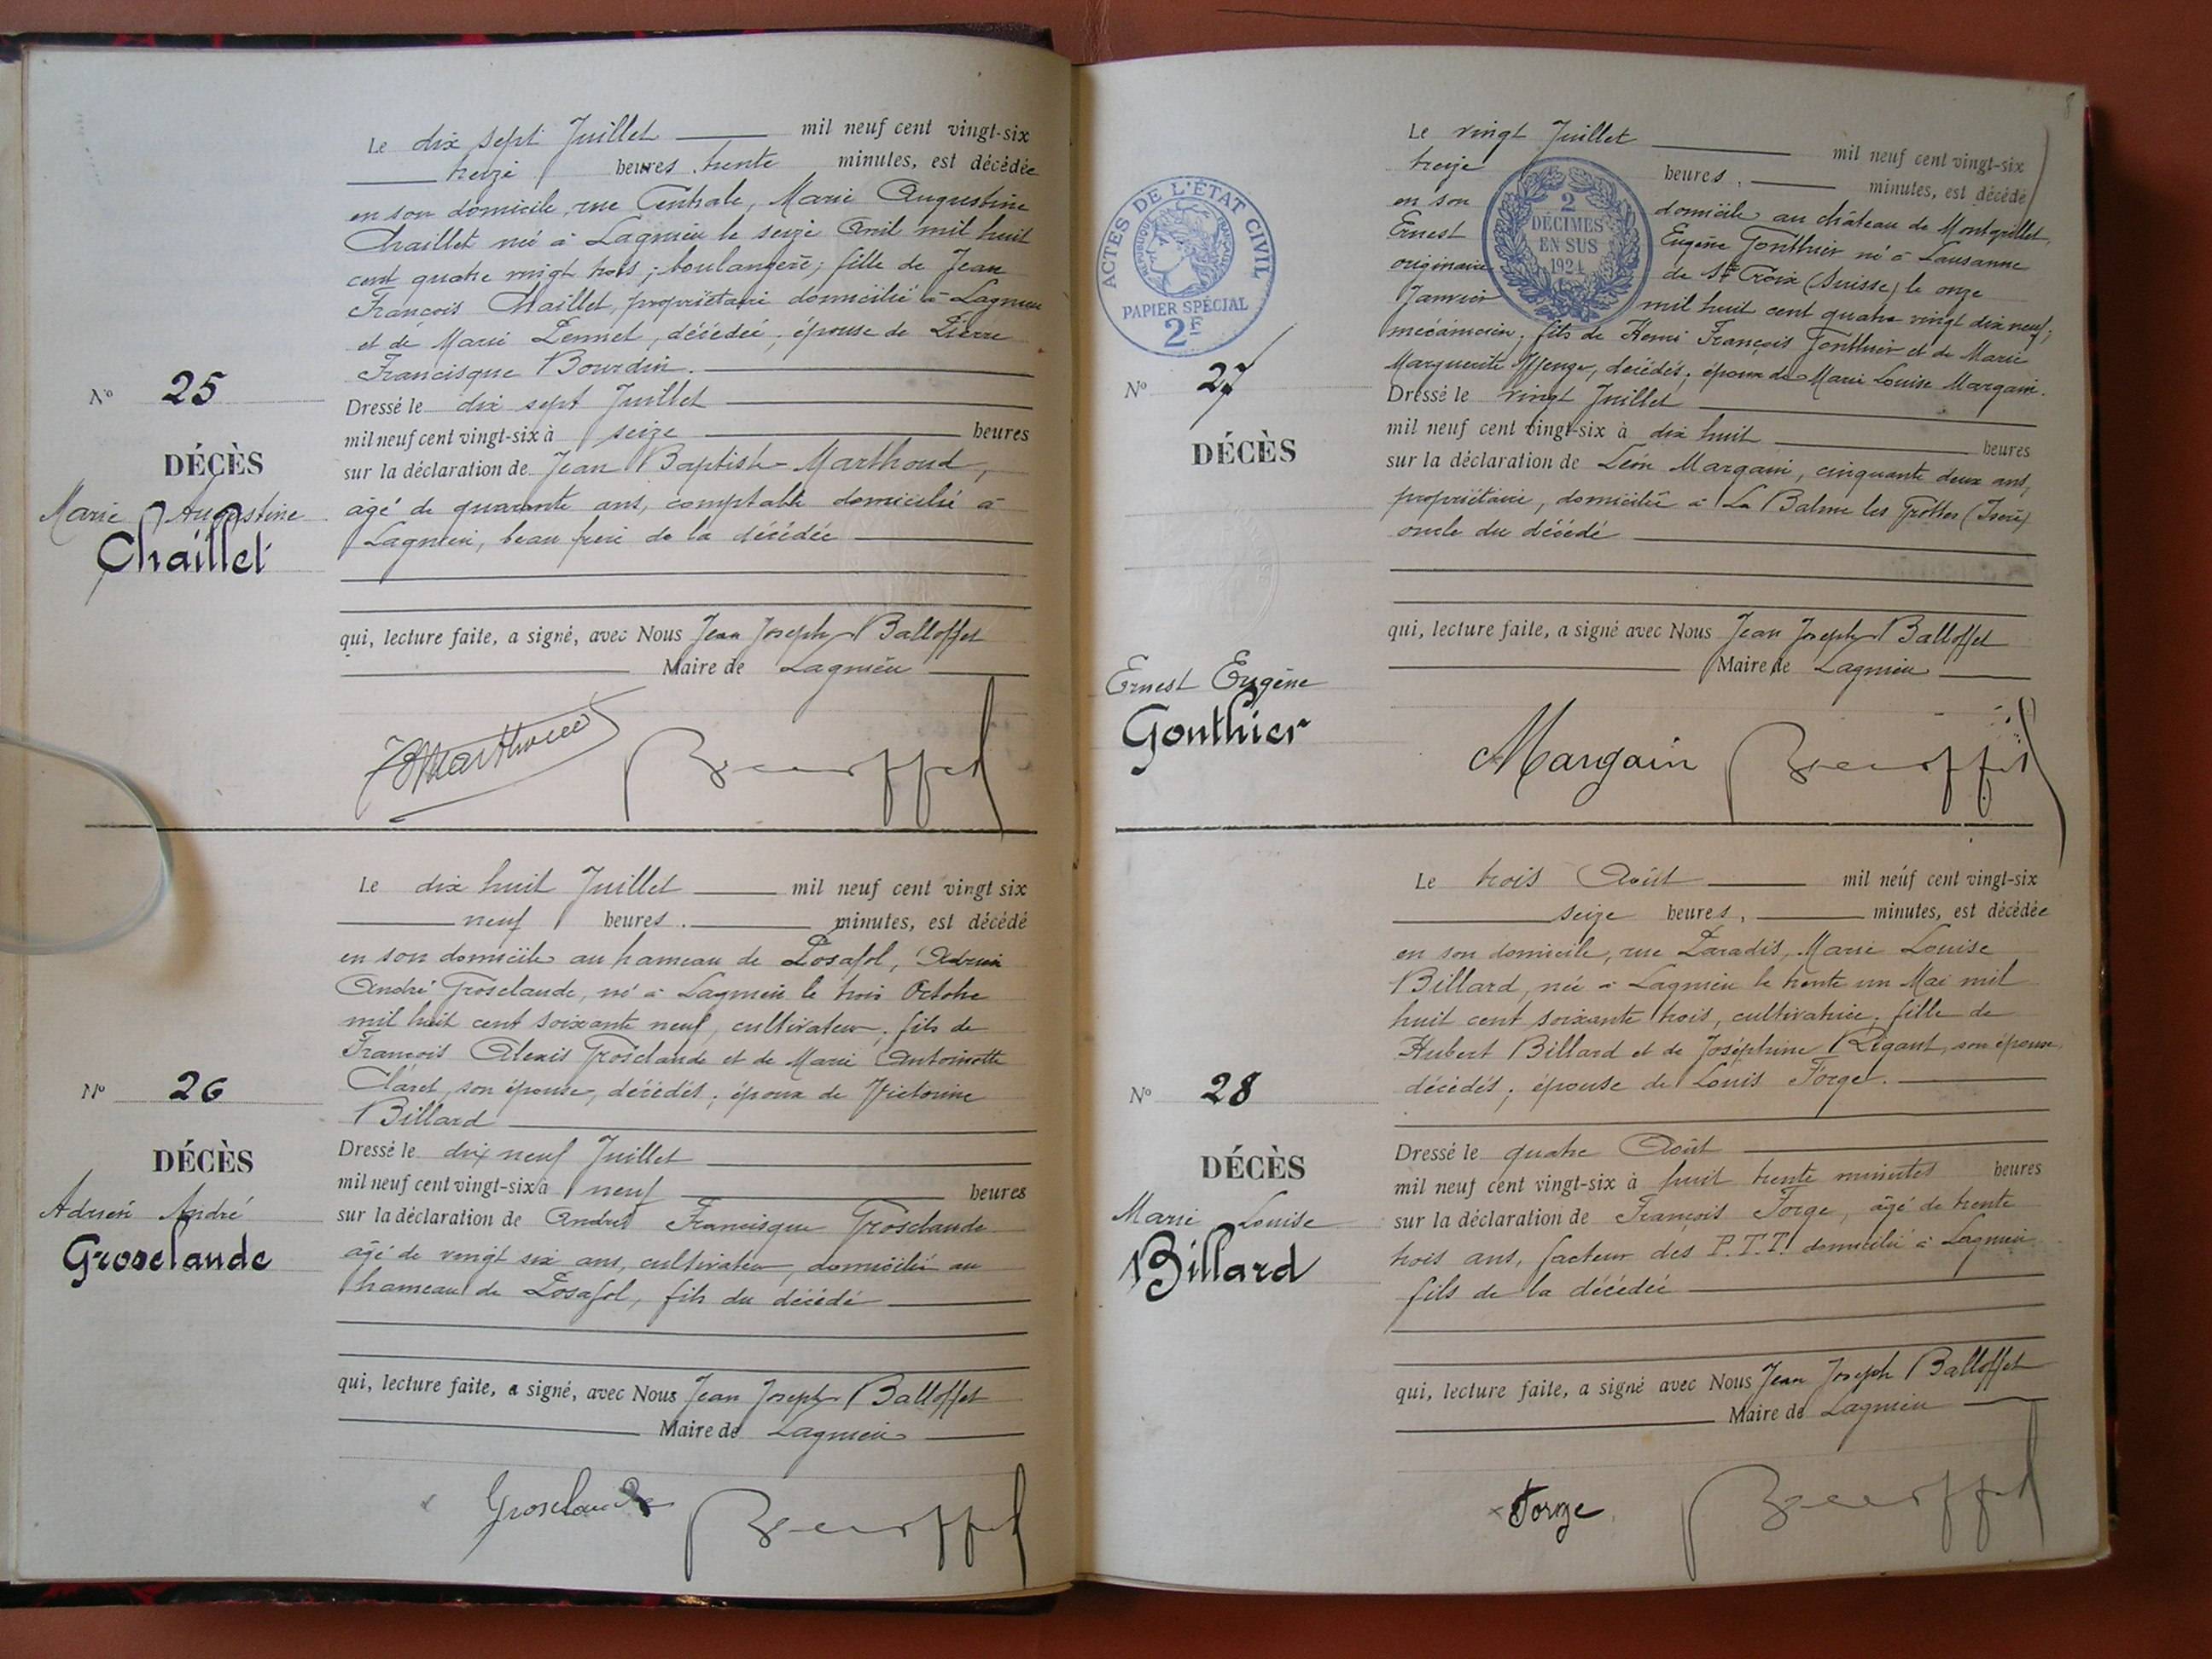 Le dix sept Juillet mil neuf cent vingt-six
treize heures trente minutes, est décédée
en son domicile, rue Centrale, Marie Augustine
Chaillet née à Lagnieu le seize Avril mil huit
cent quatre vingt trois ; boulangère ; fille de Jean
François Chaillet, propriétaire domicilié à Lagnieu
et de Marie décédée ; épouse de Pierre
Francisque Bourdin.
N° 25
DÉCÈS
Marie Augustine
Chaillet
Dressé le dix sept Juillet
mil neuf cent vingt-six à seize heures
sur la déclaration de Jean Baptiste Marthoud,
âgé de quarante ans, comptable domicilié à
Lagnieu, beau frère de la décédée
qui, lecture faite, a signé, avec Nous Jean Joseph Balloffet
Maire de Lagnieu
Le dix huit Juillet mil neuf cent vingt six
neuf heures. minutes, est décédé
en son domicile au hameau de Posafol, Adrien
André Groselaude, né à Lagnieu le trois Octobre
mil huit cent soixante neuf, cultivateur ; fils de
François Alexis Groselaude et de Marie Antoinette
Claret, son épouse, décédés ; époux de Victorine
Billard
N° 26
DÉCÈS
Adrien André
Groselaude
Dressé le dix neuf Juillet
mil neuf cent vingt-six à neuf heures
sur la déclaration de André Francisque Groselaude
âgé de vingt six ans, cultivateur, domicilié au
hameau de Posafol, fils du décédé
qui, lecture faite, a signé, avec Nous Jean Joseph Balloffet
Maire de Lagnieu
Groselaude
8
Le vingt Juillet mil neuf cent vingt-six
treize heures, minutes, est décédé
en son domicile au château de Montgrillet,
Ernest Eugène Gonthier né à Lausanne
originaire de Ste Croix (Suisse) le onze
Janvier mil huit cent quatre vingt dix neuf ;
mécanicien ; fils de Henri François Gonthier et de Marie
Marguerite décédés ; époux de Marie Louise Margain.
ACTES DE L'ÉTAT CIVIL
RÉPUBLIQUE FRANÇAISE
PAPIER SPÉCIAL
2F
2
DÉCIMES
EN SUS
1924
N° 27
DÉCÈS
Ernest Eugène
Gonthier
Dressé le vingt Juillet
mil neuf cent vingt-six à dix huit heures
sur la déclaration de Léon Margain, cinquante deux ans,
propriétaire, domicilié à La Balme les Grottes (Isère)
oncle du décédé
qui, lecture faite, a signé avec Nous Jean Joseph Balloffet
Maire de Lagnieu
Margain
Le trois Août mil neuf cent vingt-six
seize heures, minutes, est décédée
en son domicile, rue Paradis, Marie Louise
Billard, née à Lagnieu le trente un Mai mil
huit cent soixante trois, cultivatrice ; fille de
Hubert Billard et de Joséphine Rigaut, son épouse,
décédés ; épouse de Louis Forge.
N° 28
DÉCÈS
Marie Louise
Billard
Dressé le quatre Août
mil neuf cent vingt-six à huit trente minutes heures
sur la déclaration de François Forge, âgé de trente
trois ans, facteur des P.T.T. domicilié à Lagnieu
fils de la décédée
qui, lecture faite, a signé avec Nous Jean Joseph Balloffet
Maire de Lagnieu
Forge